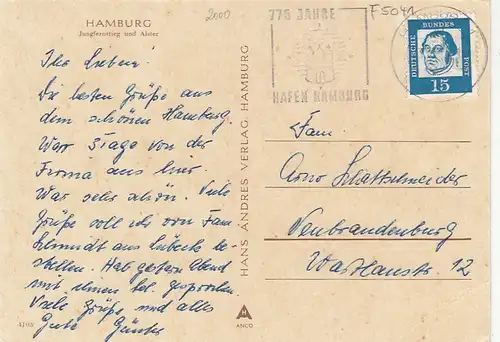 HAMBURG
Jungfernstieg und Alster
2000
775 JAHRE
HAFEN HAMBURG
F5041
DEUTSCHE
BUNDES
POST
15
Ihr Lieben!
Die besten Grüße aus
dem schönen Hamburg.
War 3 Tage von der
Firma aus hier.
War sehr schön. Viele
Grüße soll ich von Fam.
Schmidt aus Lübeck be-
stellen. Hab gestern Abend
mit ihnen tel. gesprochen.
Viele Grüße und alles
Gute Günter
4108
HANS ANDRES VERLAG, HAMBURG
ANCO
Fam.
Arno Schattschneider
Neubrandenburg
Warthaustr. 12